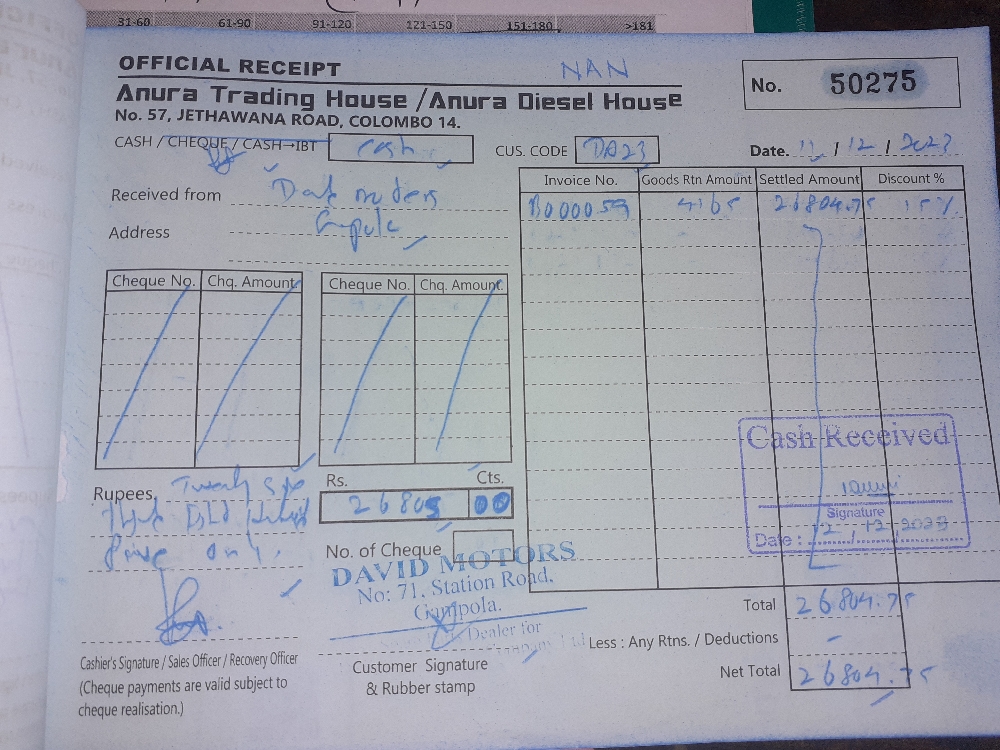 31-60 61-90 91-120 121-150 151-180 >181
OFFICIAL RECEIPT NAN
Anura Trading House /Anura Diesel House
No. 57, JETHAWANA ROAD, COLOMBO 14.
No. 50275
CASH / CHEQUE / CASH→IBT cash
CUS. CODE DA23
Date. 11 / 12 / 2023
Received from
Address
Invoice No. Goods Rtn Amount Settled Amount Discount %
B000059 4165 26804.75 15%
Cheque No. Chq. Amount Cheque No. Chq. Amount
Cash Received
Signature
Date : 12 / 12 / 2023
Rupees, Twenty six
Eight Hundred
Five only.
Rs. Cts.
26805 00
No. of Cheque
DAVID MOTORS
No: 71, Station Road,
Gampola.
Dealer for
Total 26804.75
Less : Any Rtns. / Deductions -
Net Total 26804.75
Cashier's Signature / Sales Officer / Recovery Officer
(Cheque payments are valid subject to
cheque realisation.)
Customer Signature
& Rubber stamp